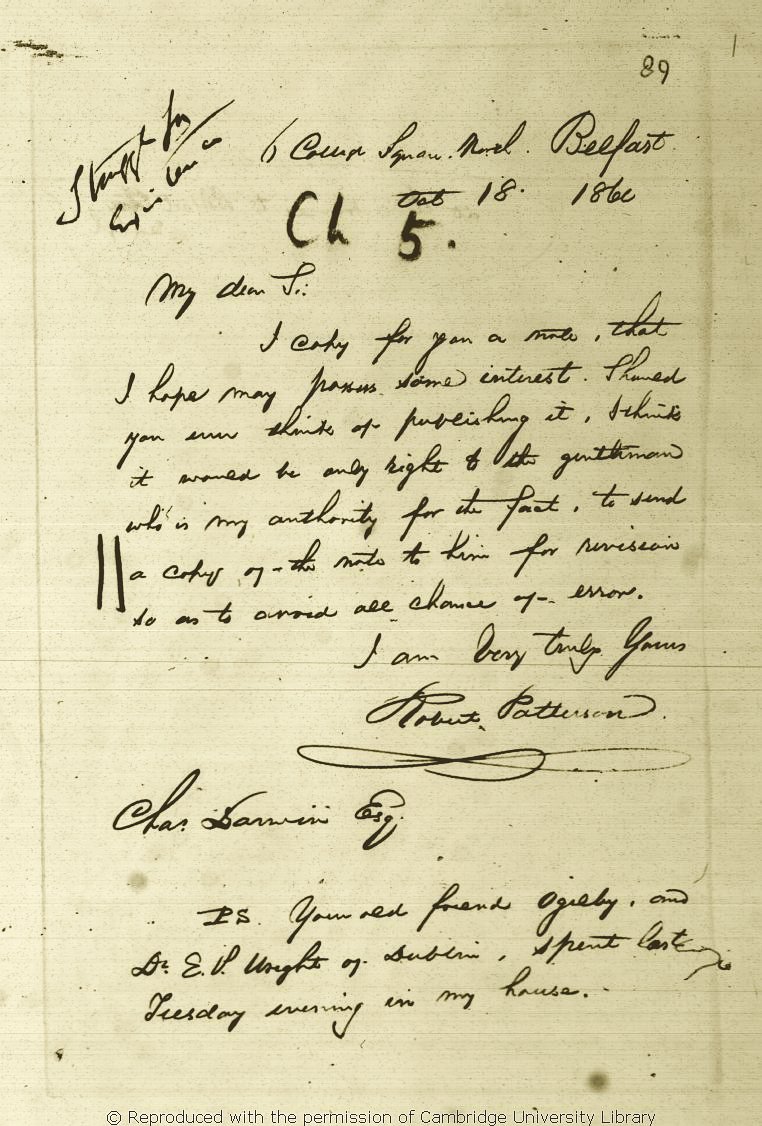 89
Struggle for
Existence
6 College Square North. Belfast
Oct 18. 1860
Ch 5.
My dear Sir:
I copy for you a note, that
I hope may possess some interest. Should
you ever think of publishing it, I think
it would be only right to the gentleman
who is my authority for the fact, to send
a copy of the note to him for revision
so as to avoid all chance of error.
I am Very truly Yours
Robert Patterson
Chas. Darwin Esq.
PS Your old friend Ogilby, and
Dr. E. P. Wright of Dublin, spent last
Tuesday evening in my house.
© Reproduced with the permission of Cambridge University Library